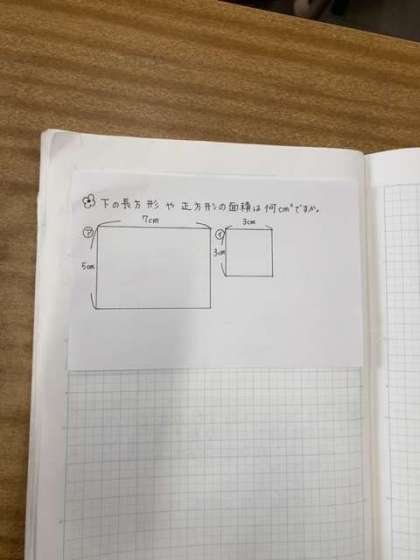 下の長方形や正方形の面積は何cm²ですか。
㋐ 7cm
5cm
㋑ 3cm
3cm